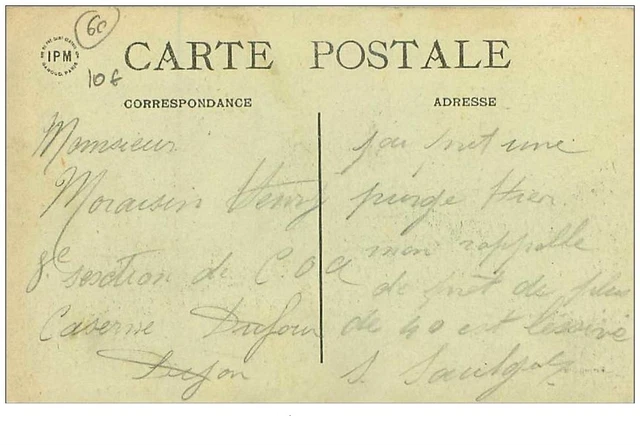 60
IPM
10 €
CARTE POSTALE
CORRESPONDANCE
ADRESSE
Monsieur
Moraisin Henry
8e sesction de C O A
Caserne Dufour
Dijon
j'ai une
purge Hier
mon rappelle
de de plus
de 40 est